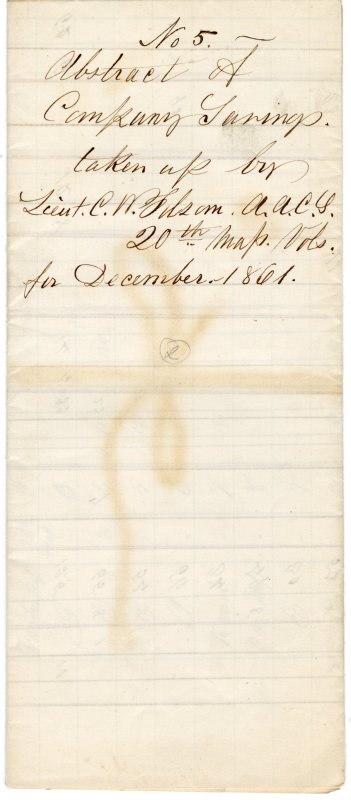 No 5.
Abstract F
Company Savings.
taken up by
Lieut. C. W. Folsom. A.A.C.S.
20th Mass. Vols.
for December. 1861.
2